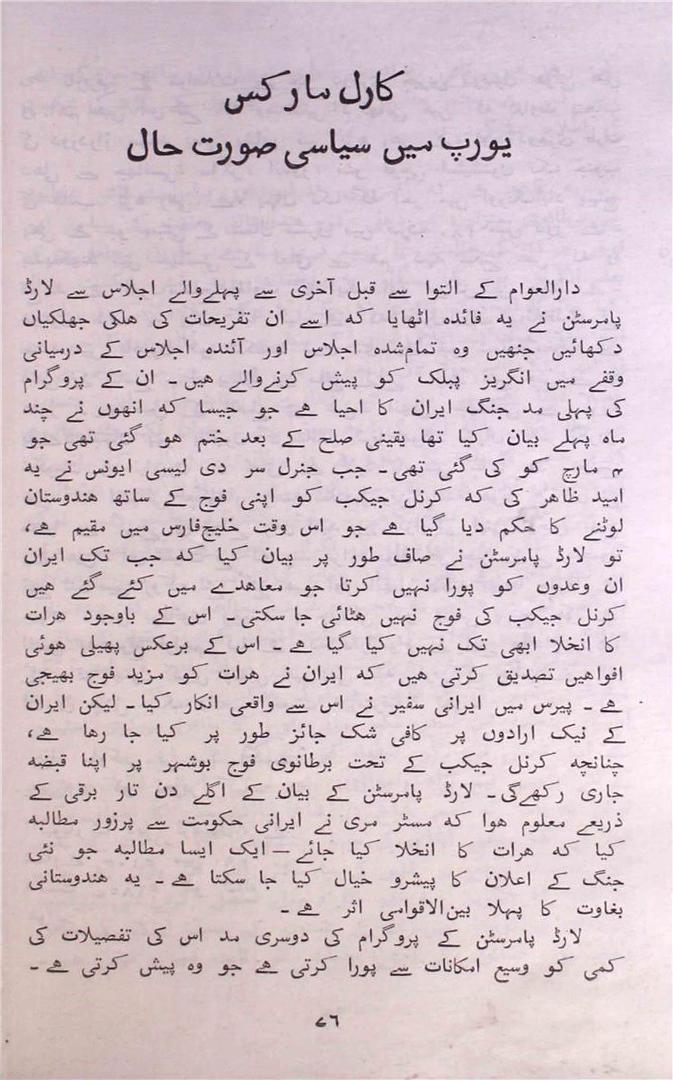 کارل مارکس
یورپ میں سیاسی صورت حال
دارالعوام کے التوا سے قبل آخری سے پہلےوالے اجلاس سے لارڈ
پامرسٹن نے یہ فائدہ اٹھایا کہ اسے ان تفریحات کی ھلکی جھلکیاں
دکھائیں جنھیں وہ تمامشدہ اجلاس اور آئندہ اجلاس کے درمیانی
وقفے میں انگریز پبلک کو پیش کرنےوالے ھیں۔ ان کے پروگرام
کی پہلی مد جنگ ایران کا احیا ھے جو جیسا کہ انھوں نے چند
ماہ پہلے بیان کیا تھا یقینی صلح کے بعد ختم ھو گئی تھی جو
۴ مارچ کو کی گئی تھی۔ جب جنرل سر دی لیسی ایونس نے یہ
امید ظاھر کی کہ کرنل جیکب کو اپنی فوج کے ساتھ ھندوستان
لوٹنے کا حکم دیا گیا ھے جو اس وقت خلیجفارس میں مقیم ھے،
تو لارڈ پامرسٹن نے صاف طور پر بیان کیا کہ جب تک ایران
ان وعدوں کو پورا نہیں کرتا جو معاھدے میں کئے گئے ھیں
کرنل جیکب کی فوج نہیں ھٹائی جا سکتی۔ اس کے باوجود ھرات
کا انخلا ابھی تک نہیں کیا گیا ھے۔ اس کے برعکس پھیلی ھوئی
افواھیں تصدیق کرتی ھیں کہ ایران نے ھرات کو مزید فوج بھیجی
ھے۔ پیرس میں ایرانی سفیر نے اس سے واقعی انکار کیا۔ لیکن ایران
کے نیک ارادوں پر کافی شک جائز طور پر کیا جا رھا ھے،
چنانچہ کرنل جیکب کے تحت برطانوی فوج بوشہر پر اپنا قبضہ
جاری رکھےگی۔ لارڈ پامرسٹن کے بیان کے اگلے دن تار برقی کے
ذریعے معلوم ھوا کہ مسٹر مری نے ایرانی حکومت سے پرزور مطالبہ
کیا کہ ھرات کا انخلا کیا جائے — ایک ایسا مطالبہ جو نئی
جنگ کے اعلان کا پیشرو خیال کیا جا سکتا ھے۔ یہ ھندوستانی
بغاوت کا پہلا بینالاقوامی اثر ھے۔
لارڈ پامرسٹن کے پروگرام کی دوسری مد اس کی تفصیلات کی
کمی کو وسیع امکانات سے پورا کرتی ھے جو وہ پیش کرتی ھے۔
۷۶